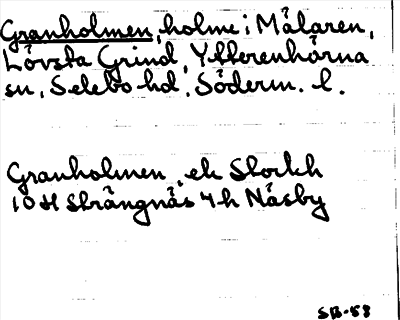 Granholmen, holme i Mälaren,
Lövsta Grind, Ytterenhörna
sn, Selebo hd, Söderm. l.
Granholmen, ek Stockh
10H Strängnäs 4h Näsby
SB-53